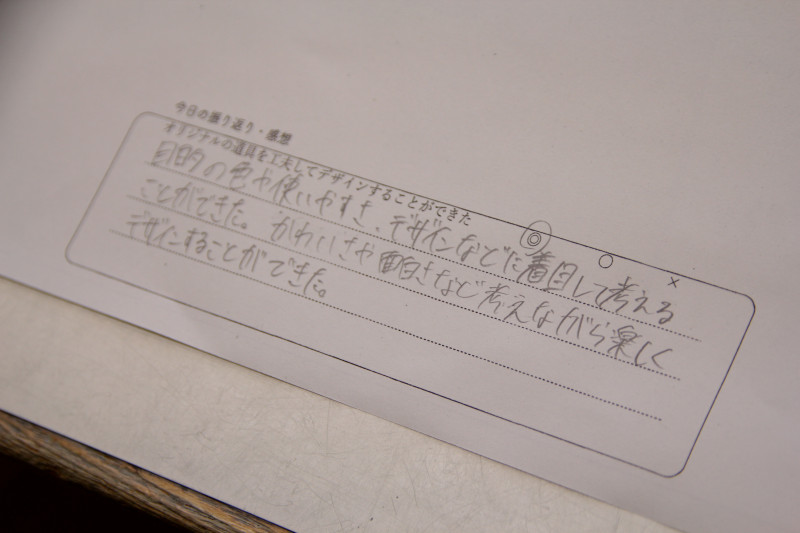 今日の振り返り・感想
オリジナルの道具を工夫してデザインすることができた ◎ ○ ×
目的の色や使いやすさ、デザインなどに着目して考える
ことができた。かわいさや面白さなど考えながら楽しく
デザインすることができた。